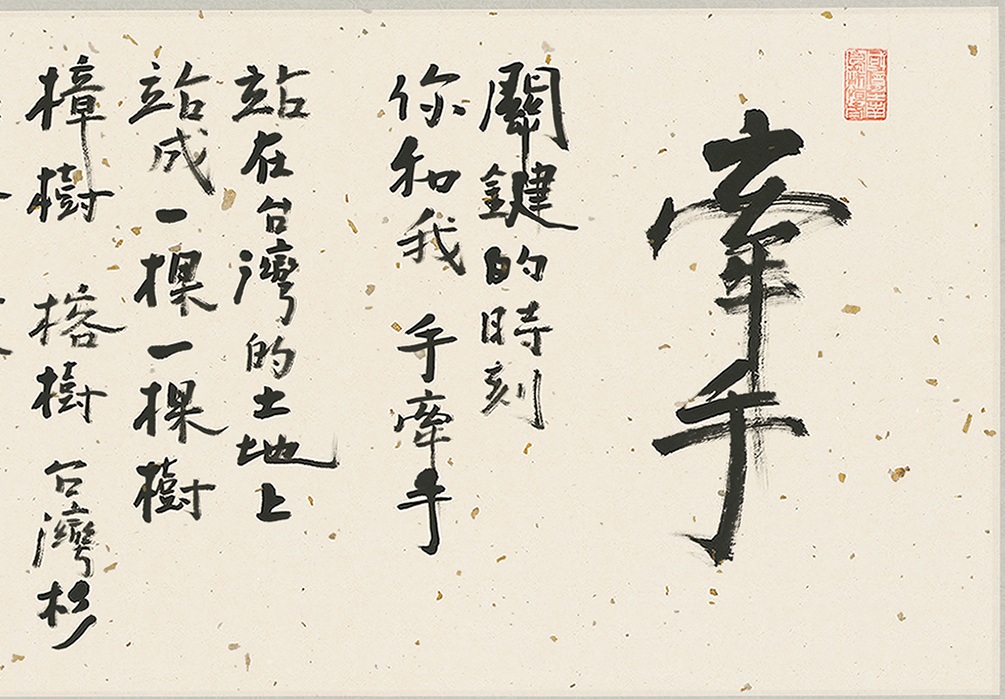 牽手
關鍵的時刻
你和我 手牽手
站在台灣的土地上
站成一棵一棵樹
樟樹 榕樹 台灣杉